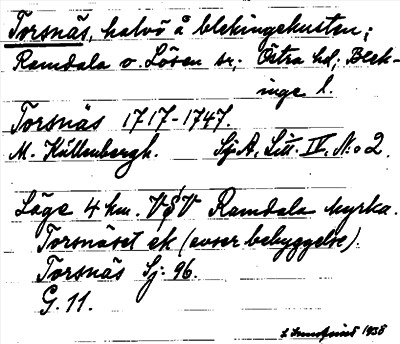 Torsnäs, halvö å blekingekusten;
Ramdala o. Lösen sr; Östra hd; Blek-
inge l.
Torsnäs 1717-1747.
M. Källenbergh. Sj. A. Litt. IV. No 2.
Läge 4 km. VSV Ramdala kyrka.
Torsnäset ek (avser bebyggelse).
Torsnäs Sj. 96.
G. 11.
1938